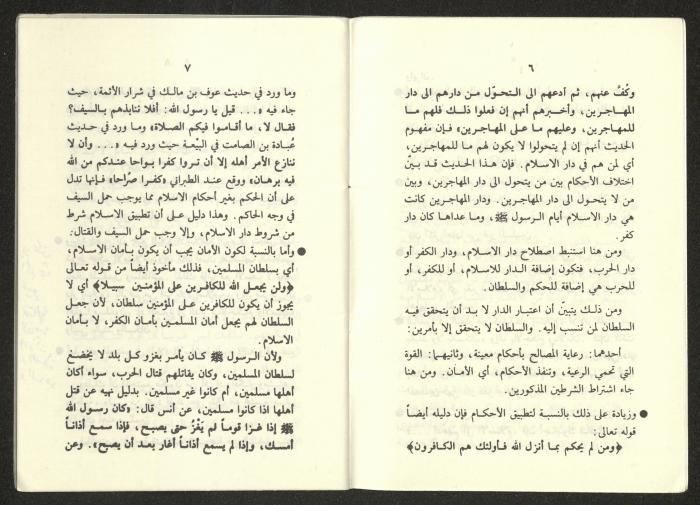 ٦
وكُفَّ عنهم، ثم أدعهم الى التحوّل من دارهم الى دار
المهاجرين، وأخبرهم أنهم إن فعلوا ذلك فلهم ما
للمهاجرين، وعليهم ما على المهاجرين» فإن مفهوم
الحديث أنهم إن لم يتحولوا لا يكون لهم ما للمهاجرين،
أي لمن هم في دار الاسلام. فإن هذا الحديث قد بيّن
اختلاف الأحكام بين من يتحول الى دار المهاجرين، وبين
من لا يتحول الى دار المهاجرين. ودار المهاجرين كانت
هي دار الاسلام أيام الرسول ﷺ، وما عداها كان دار
كفر.
ومن هنا استنبط اصطلاح دار الاسلام، ودار الكفر أو
دار الحرب، فتكون إضافة الدار للاسلام، أو للكفر، أو
للحرب هي إضافة للحكم والسلطان.
ومن ذلك يتبيّن أن اعتبار الدار لا بد أن يتحقق فيه
السلطان لمن تنسب إليه. والسلطان لا يتحقق إلا بأمرين:
أحدهما: رعاية المصالح بأحكام معينة، وثانيهما: القوة
التي تحمي الرعية، وتنفذ الأحكام، أي الأمان. ومن هنا
جاء اشتراط الشرطين المذكورين.
● وزيادة على ذلك بالنسبة لتطبيق الأحكام فإن دليله أيضاً
قوله تعالى:
﴿ومن لم يحكم بما أنزل الله فأولئك هم الكافرون﴾
٧
وما ورد في حديث عوف بن مالك في شرار الأئمة، حيث
جاء فيه «... قيل يا رسول الله: أفلا ننابذهم بالسيف؟
فقال لا، ما أقاموا فيكم الصلاة» وما ورد في حديث
عُبادة بن الصامت في البيْعة حيث ورد فيه «... وأن لا
ننازع الأمر أهله إلا أن تروا كفرا بواحا عندكم من الله
فيه برهان» ووقع عند الطبراني «كفرا صُراحا» فإنها تدل
على أن الحكم بغير أحكام الاسلام مما يوجب حمل السيف
في وجه الحاكم. وهذا دليل على أن تطبيق الاسلام شرط
من شروط دار الاسلام، وإلا وجب حمل السيف والقتال.
● وأما بالنسبة لكون الأمان يجب أن يكون بأمان الاسلام،
أي بسلطان المسلمين، فذلك مأخوذ أيضاً من قوله تعالى
﴿ولن يجعل الله للكافرين على المؤمنين سبيلا﴾ أي لا
يجوز أن يكون للكافرين على المؤمنين سلطان، لأن جعل
السلطان لهم يجعل أمان المسلمين بأمان الكفر، لا بأمان
الاسلام.
ولأن الرسول ﷺ كان يأمر بغزو كل بلد لا يخضع
لسلطان المسلمين، وكان يقاتلهم قتال الحرب، سواء أكان
أهلها مسلمين، أم كانوا غير مسلمين. بدليل نهيه عن قتل
أهلها اذا كانوا مسلمين، عن أنس قال: «كان رسول الله
ﷺ إذا غزا قوماً لم يَغْزُ حتى يصبح، فإذا سمع أذاناً
أمسك، وإذا لم يسمع أذاناً أغار بعد أن يصبح». وعن